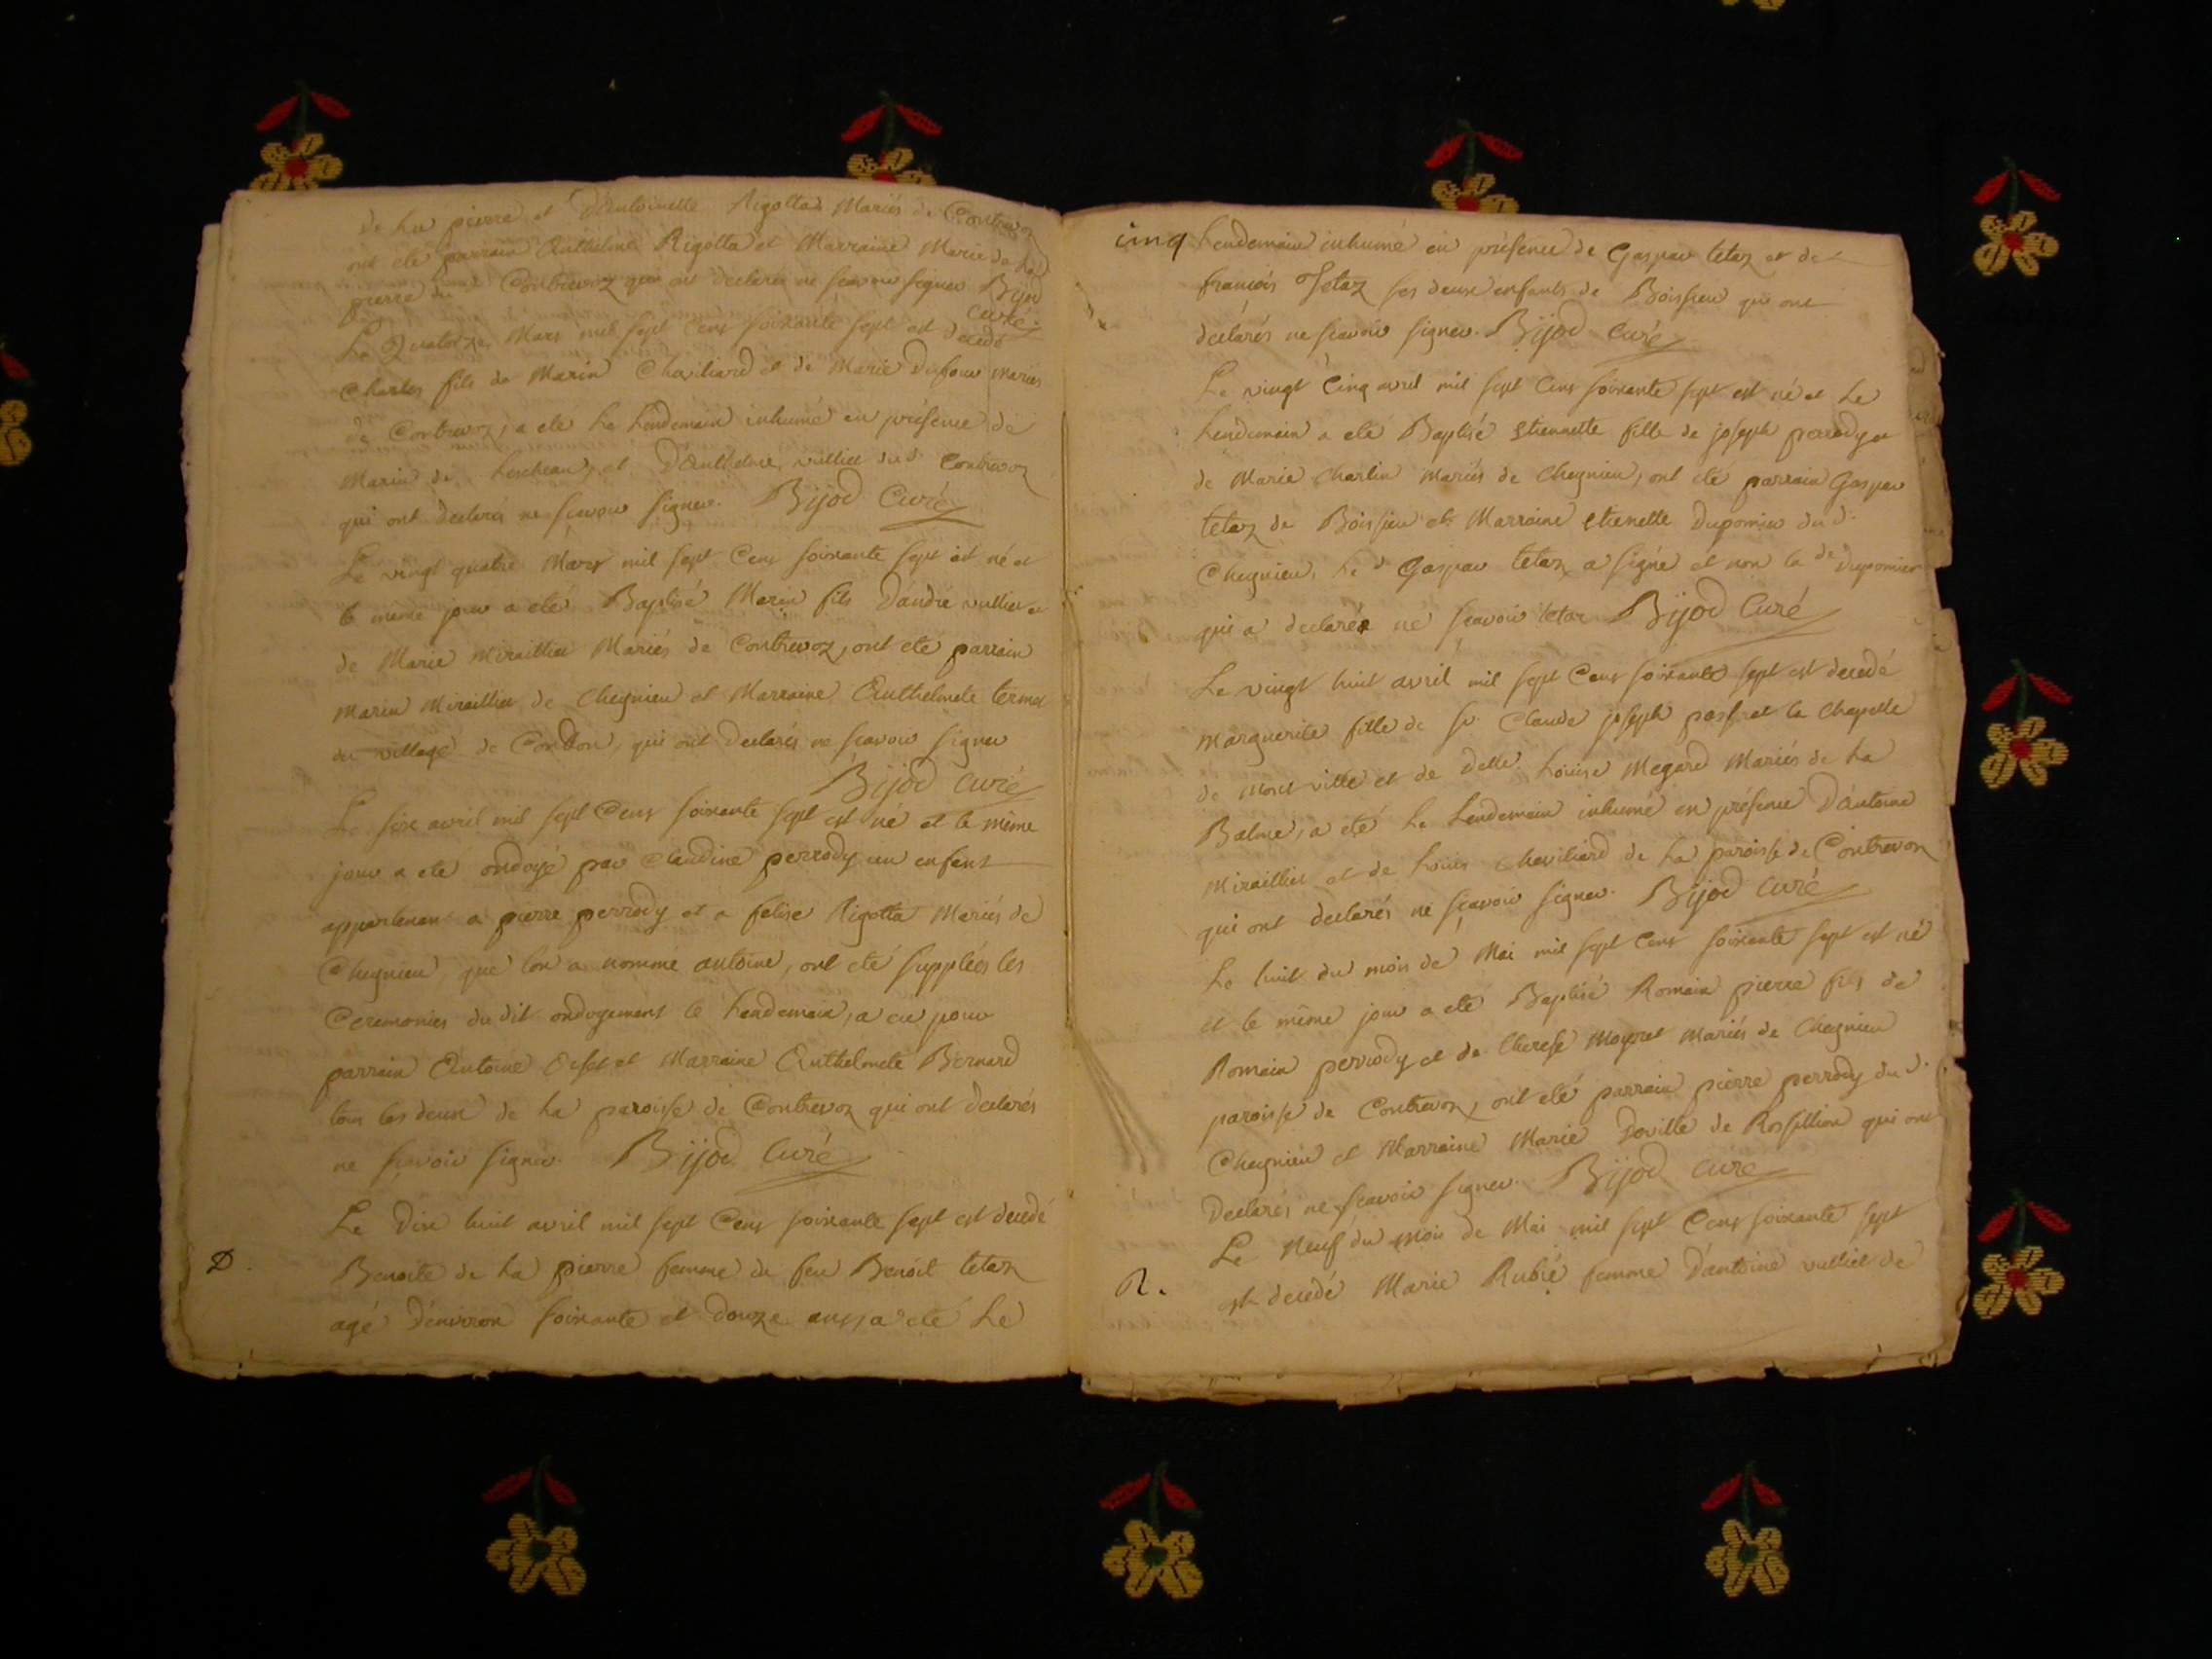 de La pierre et D'antoinette Rigottas Mariés de Contrevoz
ont été parrain Anthelme Rigotta et Marraine Marie de La
pierre du d. Contrevoz qui ont declarés ne scavoir signer Bijod
Curé.
Le Quatorze Mars mil sept Cens soixante sept est decedé
Charles fils de Marin Chaviliard et de Marie Dufour Mariés
de Contrevoz, a eté Le Lendemain inhumé en présence de
Marin de et D'anthelme vulliet du d. Contrevoz
qui ont declarés ne scavoir signer. Bijod Curé
Le vingt quatre Mars mil sept Cens soixante sept est né et
le même jour a eté Baptisé Marin fils D'andré vulliet et
de Marie Miraillet Mariés de Contrevoz, ont eté parrain
Marin Miraillet de Chegnieu et Marraine Anthelmete termet
du village de Condon, qui ont declarés ne scavoir signer
Bijod Curé
Le six avril mil sept Cens soixante sept est né et le même
jour a eté ondoyé par Claudine perrody un enfant
appartenant a pierre perrody et a felise Rigotta Mariés de
Chegnieu, que l'on a nommé antoine, ont eté suppléés les
Ceremonies du dit ondoyement le Lendemain, a eu pour
parrain Antoine et Marraine Anthelmete Bernard
tous les deux de La paroisse de Contrevoz qui ont declarés
ne scavoir signer. Bijod Curé
Le Dix huit avril mil sept Cens soixante sept est decedé
D. Benoite de La pierre femme de feu Benoit tetaz
agé D'environ soixante et douze ans, a eté Le
cinq Lendemain inhumé en présence de Gaspar tetaz et de
francois Tetaz ses deux enfants de Boissieu qui ont
declarés ne scavoir signer. Bijod Curé
Le vingt Cinq avril mil sept Cens soixante sept est né et Le
Lendemain a eté Baptisé Etiennette fille de joseph perrody et
de Marie Charlin Mariés de Chegnieu, ont eté parrain Gaspar
tetaz de Boissieu et Marraine Etienette Dupomier du d.
Chegnieu. Le d. Gaspar tetaz a signé et non la de Dupomier
qui a declaré ne scavoir tetaz Bijod Curé
Le vingt huit avril mil sept Cens soixante sept est decedé
Marguerite fille de sr. Claude joseph et la Chapelle
de mont ville et de delle. Louise Megard Mariés de La
Balme, a eté Le Lendemain inhumé en présence D'antoine
Miraillet et de Louis Chaviliard de La paroisse de Contrevoz
qui ont declarés ne scavoir signer. Bijod Curé
Le huit du mois de Mai mil sept Cens soixante sept est né
et le même jour a eté Baptisé Romain pierre fils de
Romain perrody et de Therese Moyret Mariés de Chegnieu
paroisse de Contrevoz, ont eté parrain pierre perrody du d.
Chegnieu et Marraine Marie Doville de Rossillion qui ont
Declarés ne scavoir signer. Bijod Curé
Le Neuf du Mois de Mai mil sept Cens soixante sept
R. est decedé Marie Rubie femme D'antoine vulliet de